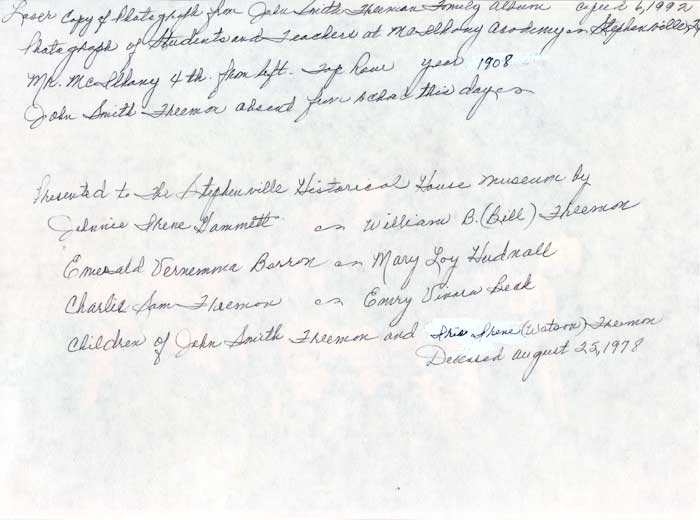 Laser Copy of Photograph from John Smith Freeman Family Album April 26, 1992
Photograph of Students and Teachers at McIlhany Academy in Stephenville, Tx
Mr. McIlhany 4th. from left. Top Row year 1908
John Smith Freemon absent from school this day
Presented to the Stephenville Historical House Museum by
Jennie Irene Hammett William B. (Bill) Freemon
Emerald Vernemma Barron Mary Loy Hudnall
Charlie Sam Freemon Emry Vinara Beak
Children of John Smith Freemon and Iris Irene (Watson) Freemon
Deceased August 25, 1978